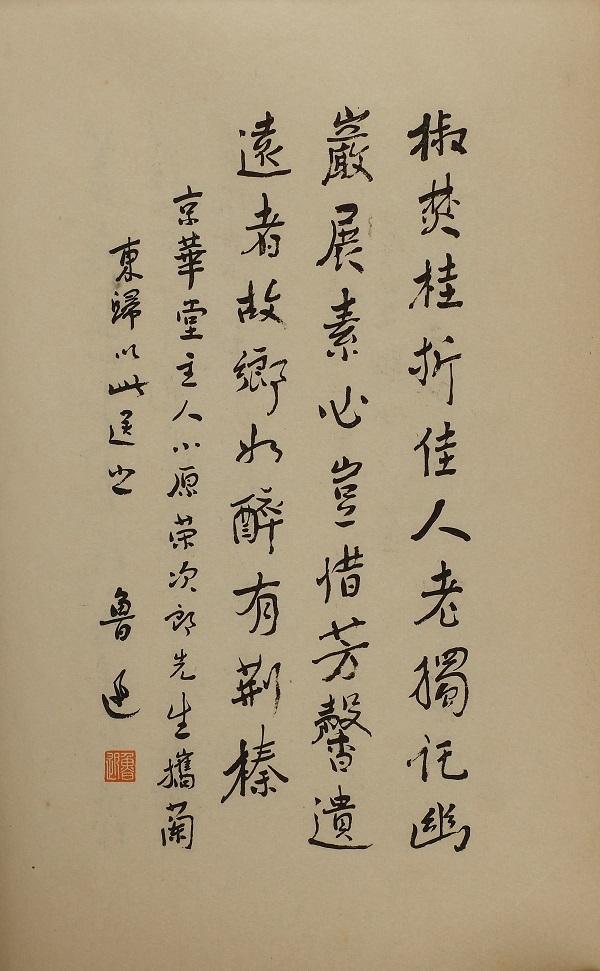 椒焚桂折佳人老獨託幽
巖展素心豈惜芳馨遺
遠者故鄉如醉有荆榛
京華堂主人小原荣次郎先生攜蘭
東歸以此送之
魯迅
魯迅